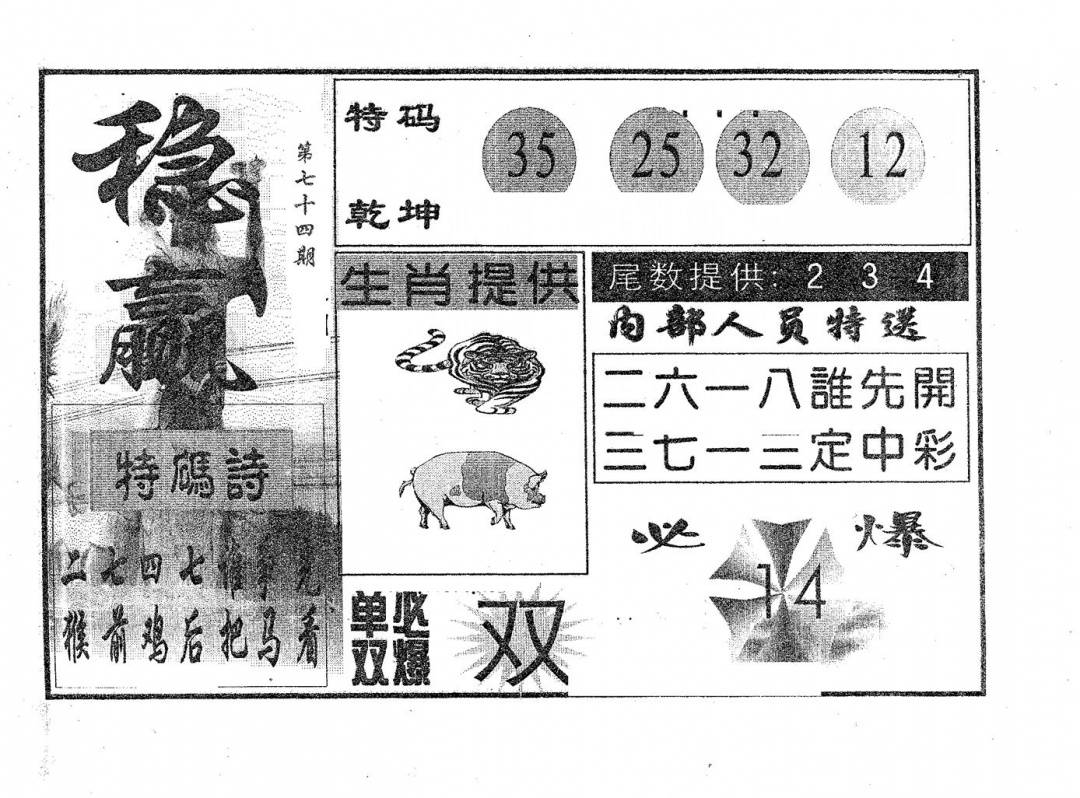 稳赢
第七十四期
特码诗
二七四七谁争先
猴前鸡后把马看
特码
乾坤
35 25 32 12
生肖提供
单双
必爆
双
尾数提供: 2 3 4
内部人员特送
二六一八誰先開
三七一三定中彩
必 爆
14